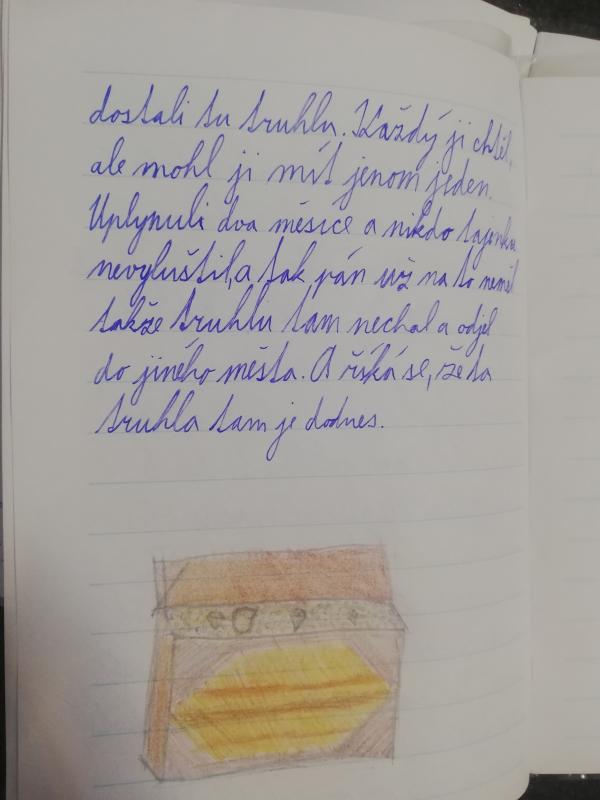 dostali tu truhlu. Každý ji chtěl,
ale mohl ji mít jenom jeden.
Uplynuli dva měsíce a nikdo tajenku
nevyluštil, a tak pán už na to neměl
takže truhlu tam nechal a odjel
do jiného města. A říká se, že ta
truhla tam je dodnes.